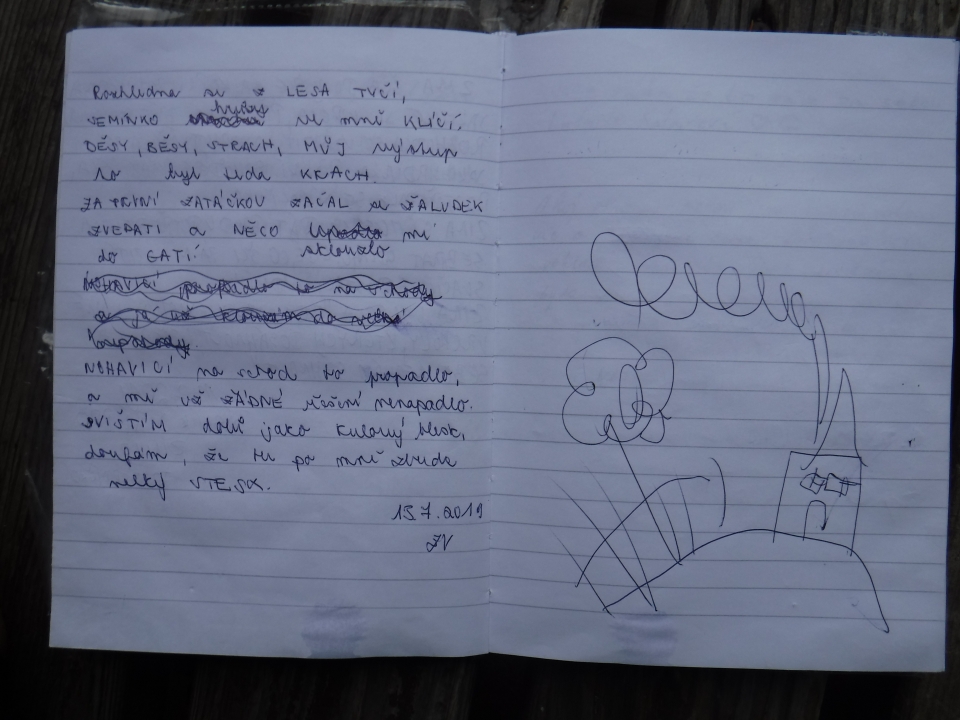 Rozhledna se z LESA TYČÍ,
SEMÍNKO hrůzy ve mně KLÍČÍ.
DĚSY, BĚSY, STRACH, MŮJ výstup
to byl teda KRACH.
ZA PRVNÍ ZATÁČKOU ZAČAL se ŽALUDEK
ZVEDATI a NĚCO sklouzlo mi
do GATÍ.
NOHAVICÍ na schod to propadlo,
a mě UŽ ŽÁDNÉ řešení nenapadlo.
SVIŠTÍM dolů jako kulový blesk,
doufám, že tu po mně zbude
velký STESK.
13.7.2019
ZV